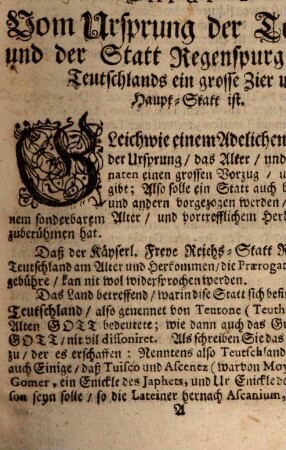 Vom Ursprung der Te
und der Statt Regenspurg
Teutschlands ein grosse Zier u
Haupt-Statt ist.
GLeichwie einem Adelichen
der Ursprung / das Alter / und
naten einen grossen Vorzug / u
gibt; Also solle ein Statt auch v
und andern vorgezogen werden /
nem sonderbarem Alter / und vortrefflichem Herk
zuberühmen hat.
Daß der Käyserl. Freye Reichs-Statt R
Teutschland am Alter und Herkommen / die Prærogat
gebühre / kan nit wol widersprochen werden.
Das Land betreffend / warin dise Statt sich befin
Teutschland / also genennet von Teutone (Teuth
Alten GOTT bedeutete; wie dann auch das Gu
GOTT / nit vil dissoniret. Als schreiben Sie das
zu / der es erschaffen: Nenntens also Teutschland
auch Einige / daß Tuisco und Ascenez (warvon Moy
Gomer, ein Enickle des Japhets, und Ur Enickle de
son seyn solle / so die Lateiner hernach Ascanium,
A